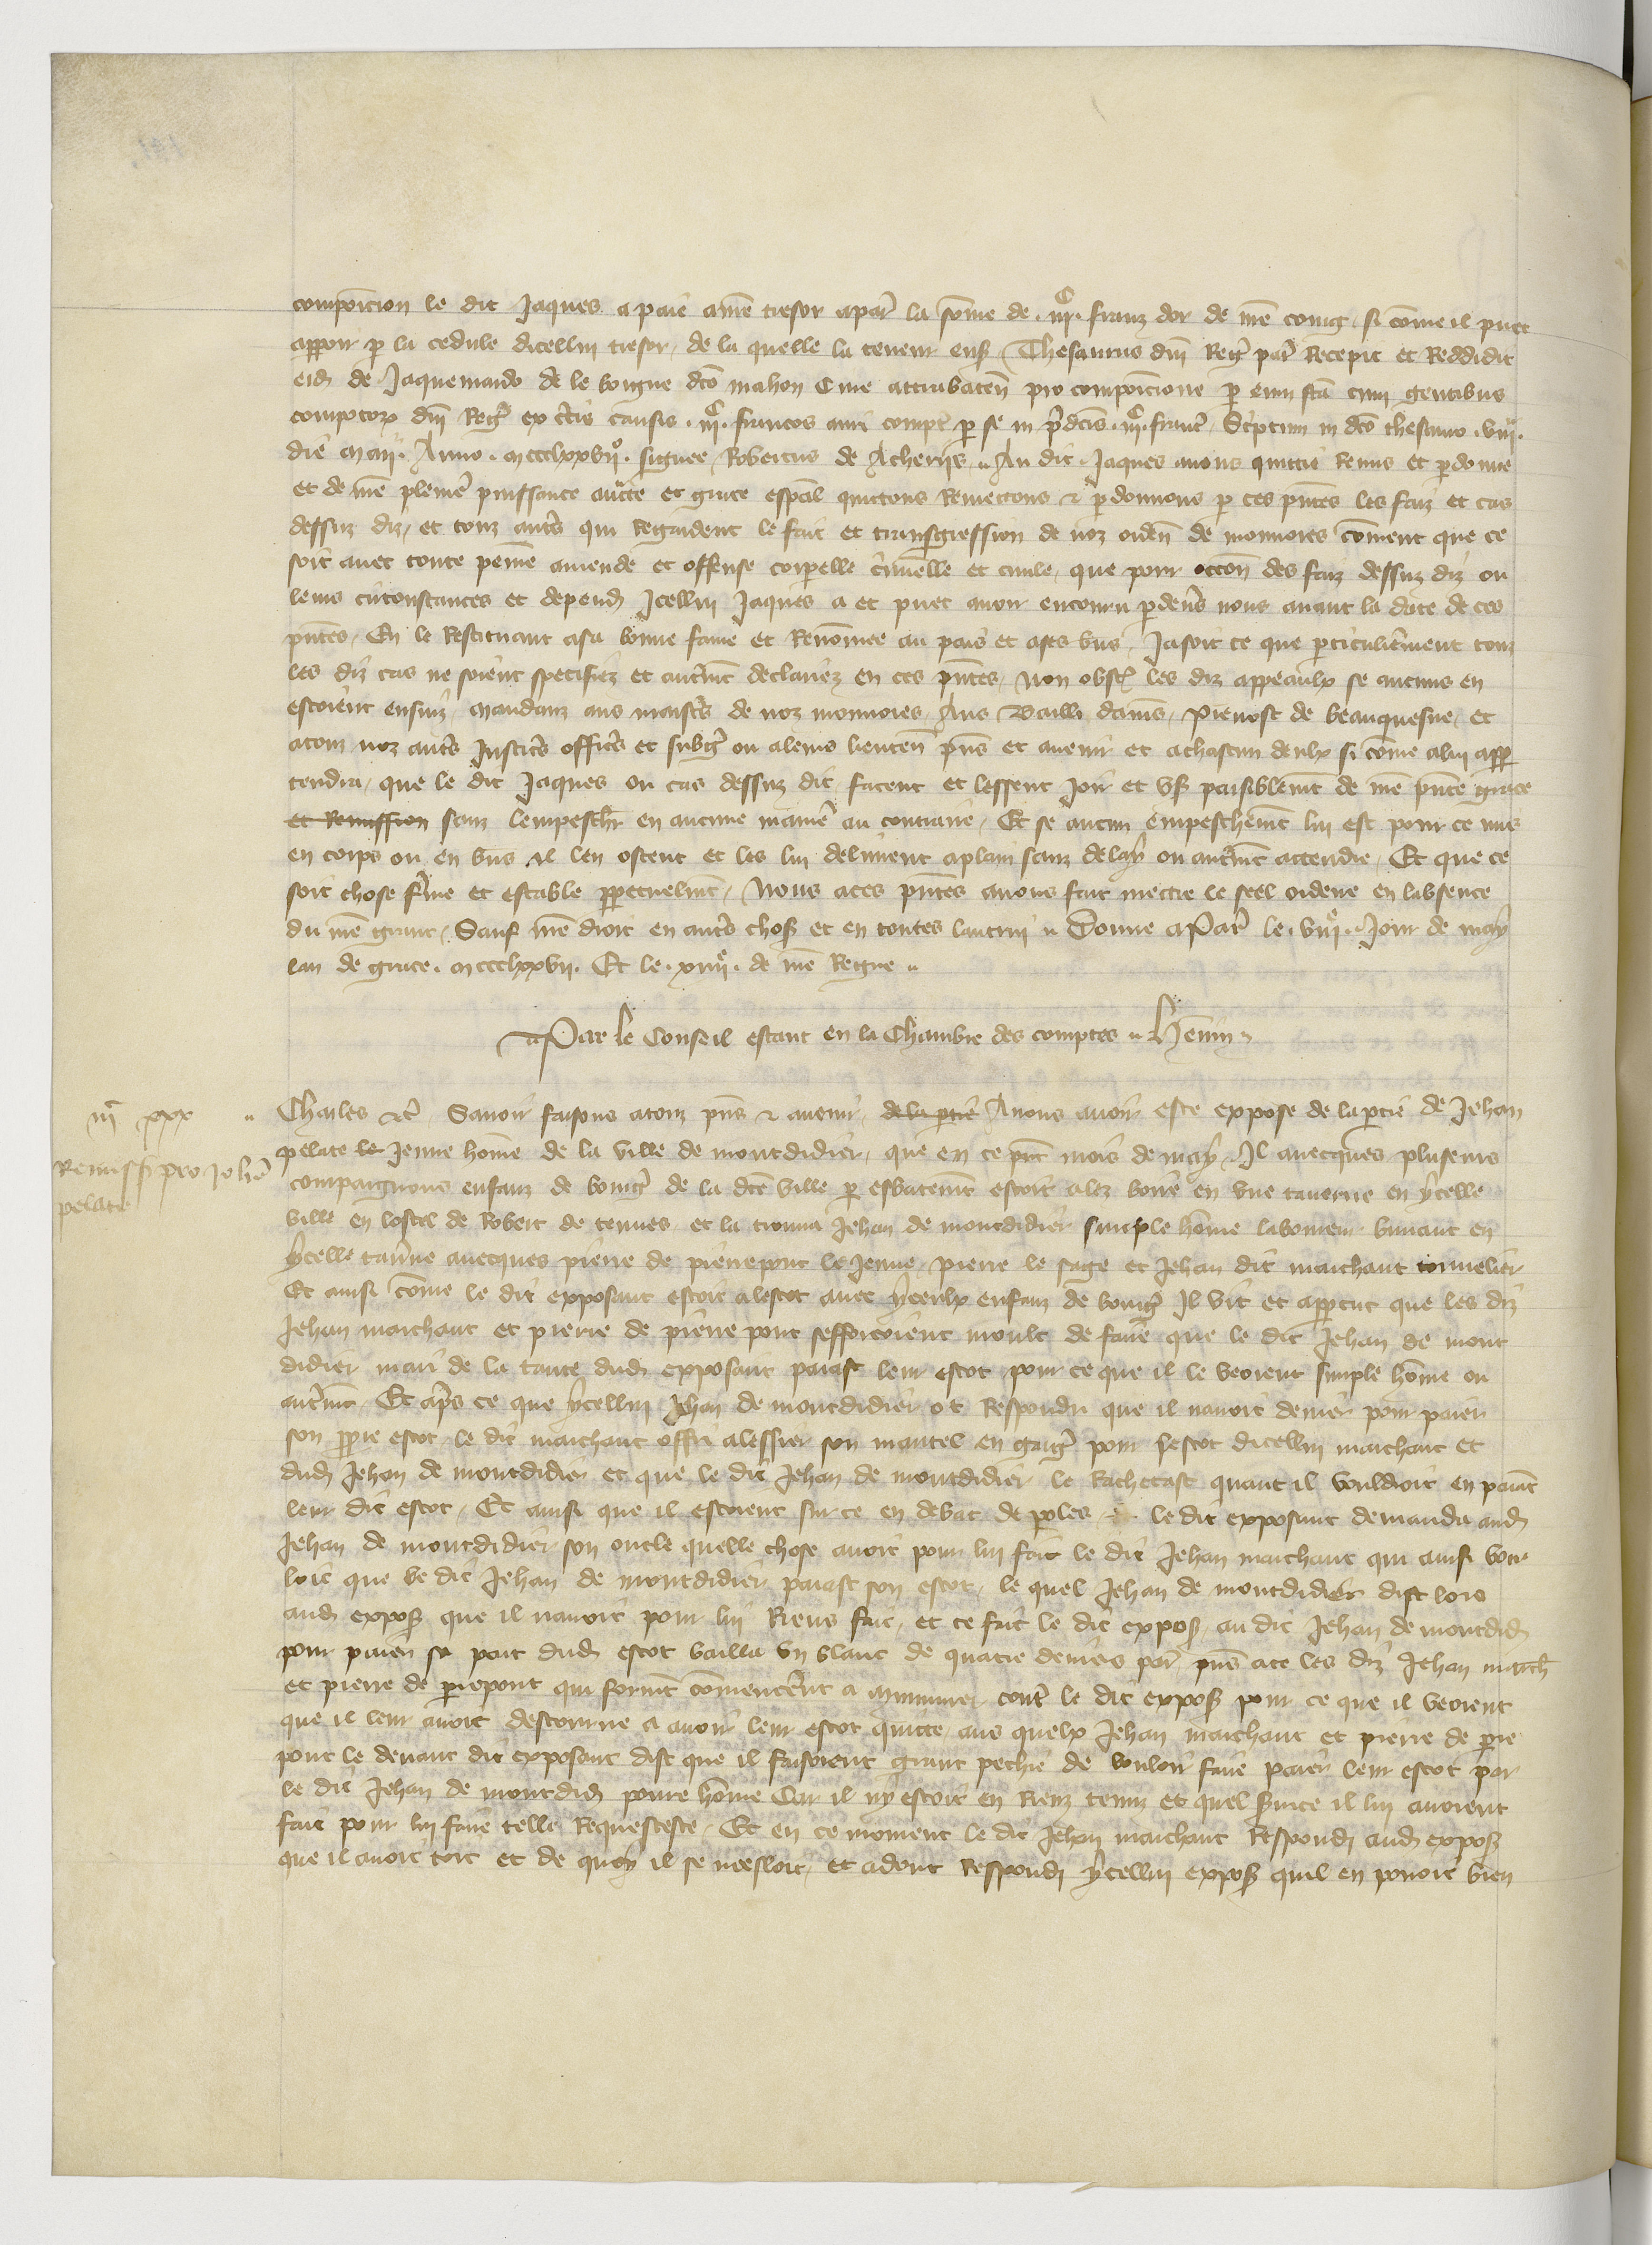 compoicion le dit Jaques a paie a nr̄e tresor a par̄ la sōme de .iiiᶜ. franz dor de nr̄e coing si cōme il puet
apparoir p la cedule dicellui tresor de la quelle la teneur ensᵗ Thesaurus dn̄i Regꝭ par̄ Recepit et Reddidit
eid de Jaquemardo de le vougue dc̄o mahon Cive attrabateñ pro compoicione p eum fc̄a cum gentibus
compotoꝝ dn̄i Regꝭ ex c̄tis causis .iiiᶜ. francos auri compt p se in p̄dc̄is .iiiᶜ. franc̄ Sc̄ptum in dc̄o thesauro .viiiᵃ.
die maii. Anno .mccclxxviiᵒ. signee Robertus de Acheriis .. Au dit Jaques avons quittie Remis et pdonne
et de nr̄e plenier puissance auc̄te et grace esp̄al quittons Remettons ⁊ pdonnons p ces pn̄tes les faiz et cas
dessuz diz, et touz autr̄s qui Regardent le fait et transgression de noz ordeñ de monnoies cōment que ce
soit avec toute peinne amende et offense corpelle c̄iminelle et civile, que pour occōn des faiz dessuz diz ou
leurs circonstances et depend Icellui Jaques a et puet avoir encouru pdevers nous avant la date de ces
pn̄tes, En le Restituant a sa bonne fame et Renōmee au pais et a ses biens, Jasoit ce que pticuliēment touz
les diz cas ne soient specifiez et autr̄mt declarez en ces pn̄tes, non obst les diz appeaulx se aucuns en
estoient ensuiz, Mandanz aus maistr̄s de noz monnoies, Aus Bailli damiens, Prevost de beauquesne, et
a touz noz autr̄s Justic̄s offic̄s et subgꝭ ou a leurs lieuteñ pn̄s et avenir et a chascun deulx si cōme a lui app
tendra, que le dit Jaques ou cas dessuz dit facent et lessent Joir et usᵉ paisiblemt de nr̄e pn̄te grace
et Remission sanz lempeschr en aucune maniēe au contraire, Et se aucun empeschemt lui est pour ce mis
en corps ou en biens il len ostent et les lui delivrent a plain sanz delay ou autr̄mt attendre, Et que ce
soit chose fērme et estable ppetuelmt, Nous a ces pn̄tes avons fait mectre le seel ordene en labsence
du nr̄e grant, Sauf nr̄e droit en autr̄s chosᵉ et en toutes lautrui .. Donne a Par̄ le .viiiᵉ. Jour de may
lan de grace .mccclxxvii. Et le .xiiiiᵉ. de nr̄e Regne ..
Par le Conseil estant en la Chambre des comptes .. H. ēmin ..
iiiᶜ xxx ..
Remiss pro Joh̄e
pelate
Charles ⁊c̄ Savoir faisons a touz pn̄s ⁊ avenir, de la ptie Anous avoir este expose de la ptie de Jehan
pelate le Jenne hōme de la ville de montdidier, que en ce pn̄t mois de may, Il avecques pluseurs
compaignons enfanz de bourgꝭ de la dc̄e ville p esbatemt estoit alez boire en une taverne en ycelle
ville en lostel de Robert de tennes et la trouva Jehan de montdidier simple hōme laboureur buvant en
ycelle tav̄ne avecques pierre de pierrepont le Jenne, pierre le sage et Jehan dit marchant tonnelier
Et ainsi cōme le dit exposant estoit a lescot avec yceulx enfanz de bourgꝭ Il vit et appcut que les diz
Jehan marchant et pierre de pierre pont sefforcoient moult de faire que le dit Jehan de mont
didier mari de la tante dud exposant paiast leur escot pour ce que il le veoient simple hōme ou
autr̄mt Et ap̄s ce que ycellui Jehan de montdidier ot Respondu que il navoit denier pour paier
son ppre escot le dit marchant offri a lessier son mantel en gaigꝭ pour lescot dicellui marchant et
dud Jehan de montdidier et que le dit Jehan de montdidier le Rachetast quant il vouldroit en paiāt
leur dit escot, Et ainsi que il estoient sur ce en debat de poles le dit exposant demanda aud
Jehan de montdidier son oncle quelle chose avoit pour lui fait le dit Jehan marchant qui ainsi vou
loit que le dit Jehan de montdidier paiast son escot, le quel Jehan de montdidier dist lors
aud exposᵉ que il navoit pour lui Riens fait, et ce fait le dit exposᵉ au dit Jehan de montdid
pour paier sa part dud escot bailla un blanc de quatre deniers par̄ pn̄s ace les diz Jehan march
et pierre de prepont qui formt cōmencer̄nt a murmurer cont̄ le dit exposᵉ pour ce que il veoient
que il leur avoit destourne a avoir leur escot quitte, aus quelx Jehan marchant et pierre de pre
pont le devant dit exposant dist que il faisoient grant pechie de vouloir faire paier leur escot par
le dit Jehan de montdid povre hōme Car il ny estoit en Rienz tenuz et quel s̄vice il lui avoient
fait pour lui faire telle Requesteste, Et en ce moment le dit Jehan marchant Respondi aud exposᵉ
que il avoit tort et de quoy il se mesloit, et adont Respondi ycellui exposᵉ quil en povoit bien